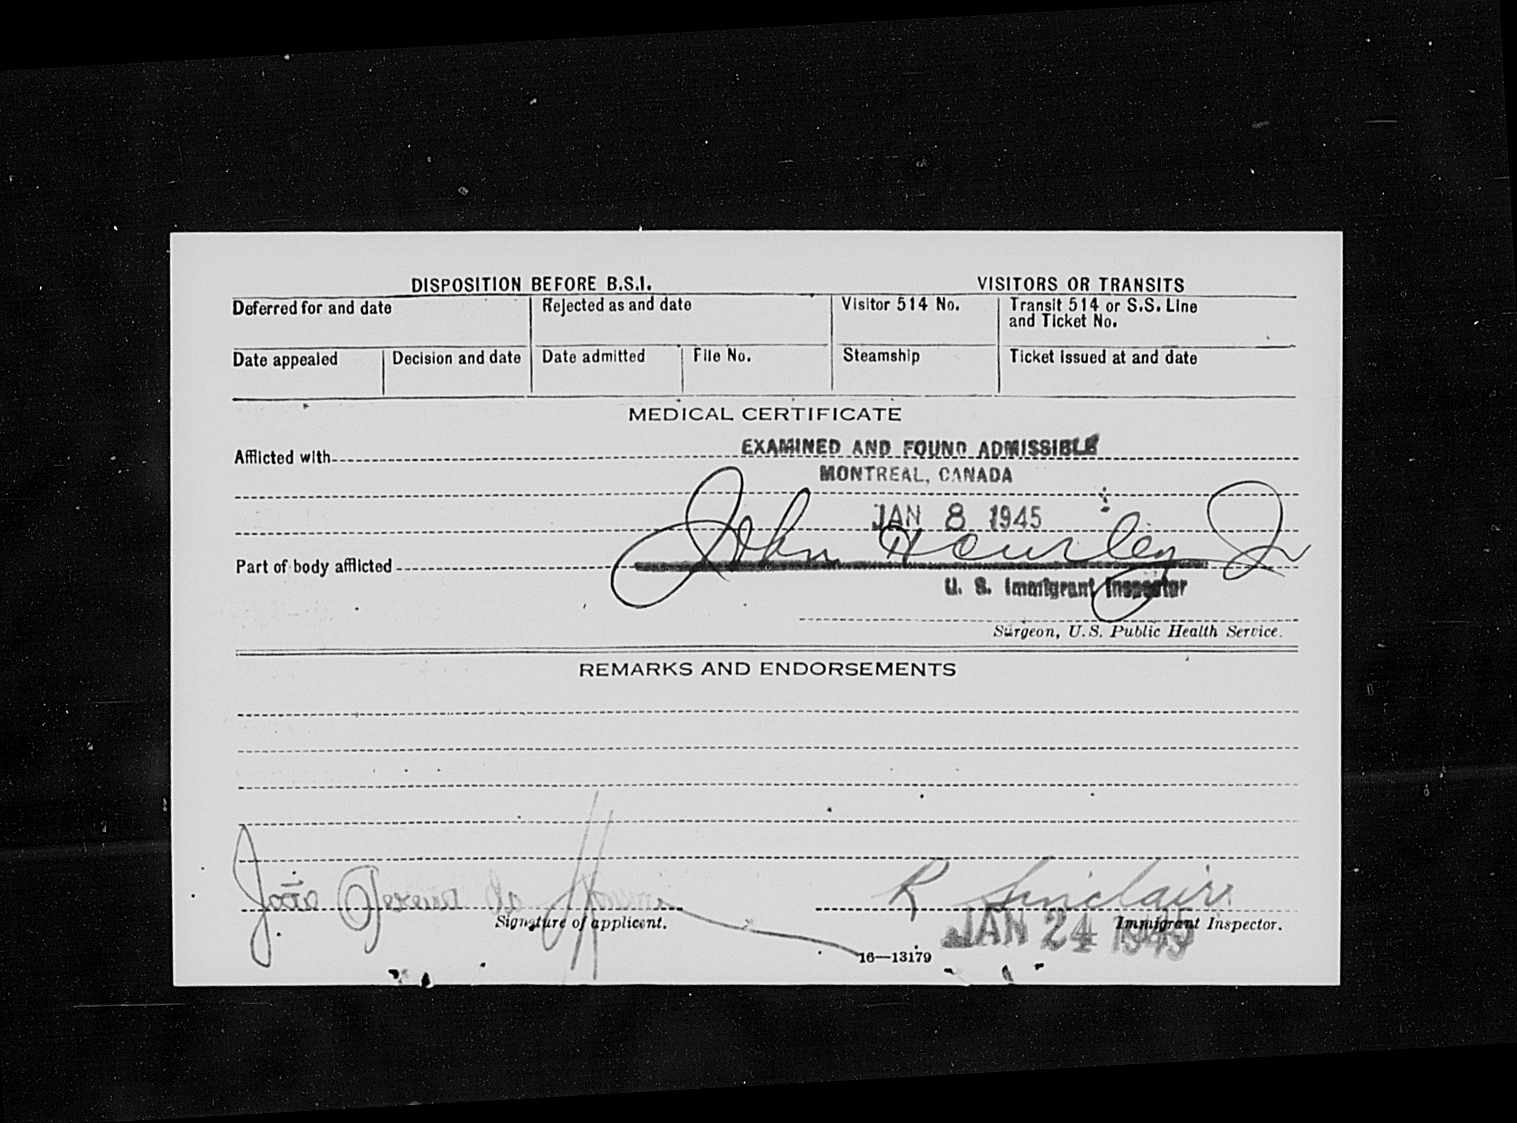 DISPOSITION BEFORE B.S.I. VISITORS OR TRANSITS
Deferred for and date Rejected as and date Visitor 514 No. Transit 514 or S.S. Line
and Ticket No.
Date appealed Decision and date Date admitted File No. Steamship Ticket issued at and date
MEDICAL CERTIFICATE
Afflicted with EXAMINED AND FOUND ADMISSIBLE
MONTREAL, CANADA
JAN 8 1945
John Hourley Jr
Part of body afflicted
U. S. Immigrant Inspector
Surgeon, U.S. Public Health Service.
REMARKS AND ENDORSEMENTS
João R Sinclair
Signature of applicent. Immigrant Inspector.
JAN 24 1945
16—13179